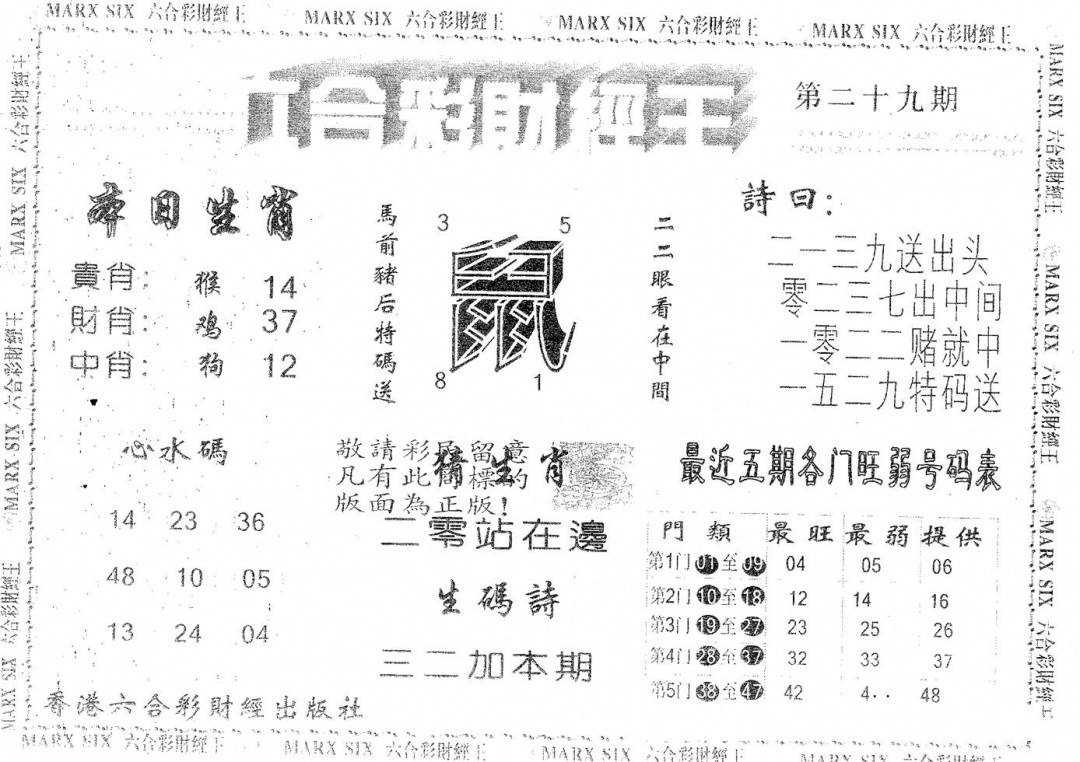 MARX SIX 六合彩財經王 MARX SIX 六合彩財經王 MARX SIX 六合彩財經王 MARX SIX 六合彩財經王
六合彩財經王
第二十九期
本日生肖
貴肖： 猴 14
財肖： 鸡 37
中肖： 狗 12
心水碼
14 23 36
48 10 05
13 24 04
香港六合彩財經出版社
馬前豬后特碼送
3 5
鼠
8 1
二二眼看在中間
敬請彩民留意
凡有此商標的
版面為正版！
猜生肖
二零站在邊
生碼詩
三二加本期
詩曰：
二一三九送出头
零二三七出中间
一零二二赌就中
一五二九特码送
最近五期各门旺弱号码表
門類 最旺 最弱 提供
第1门 01至09 04 05 06
第2门 10至18 12 14 16
第3门 19至27 23 25 26
第4门 28至37 32 33 37
第5门 38至47 42 4.. 48
MARX SIX 六合彩財經王 MARX SIX 六合彩財經王 MARX SIX 六合彩財經王
MARX SIX 六合彩財經王 MARX SIX 六合彩財經王 MARX SIX 六合彩財經王
MARX SIX 六合彩財經王 MARX SIX 六合彩財經王 MARX SIX 六合彩財經王 MARX SIX 六合彩財經王